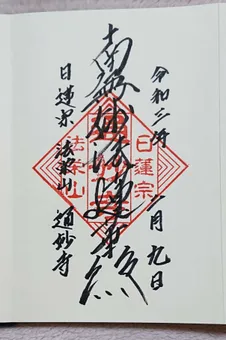 令和三年
二月九日
南無妙法蓮華経
日蓮宗
法栄山
日蓮宗 法栄山 通妙寺